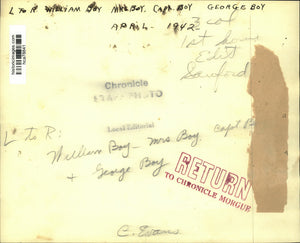 L TO R WILLIAM BOY MRS BOY. CAPT. BOY GEORGE BOY
APRIL - 1942
3 col
1st
Edit
Sanford
Chronicle
STAFF PHOTO
Local Editorial
L to R:
William Boy - Mrs Boy. Capt B
+ George Boy
RETURN
TO CHRONICLE MORGUE
C. Evans